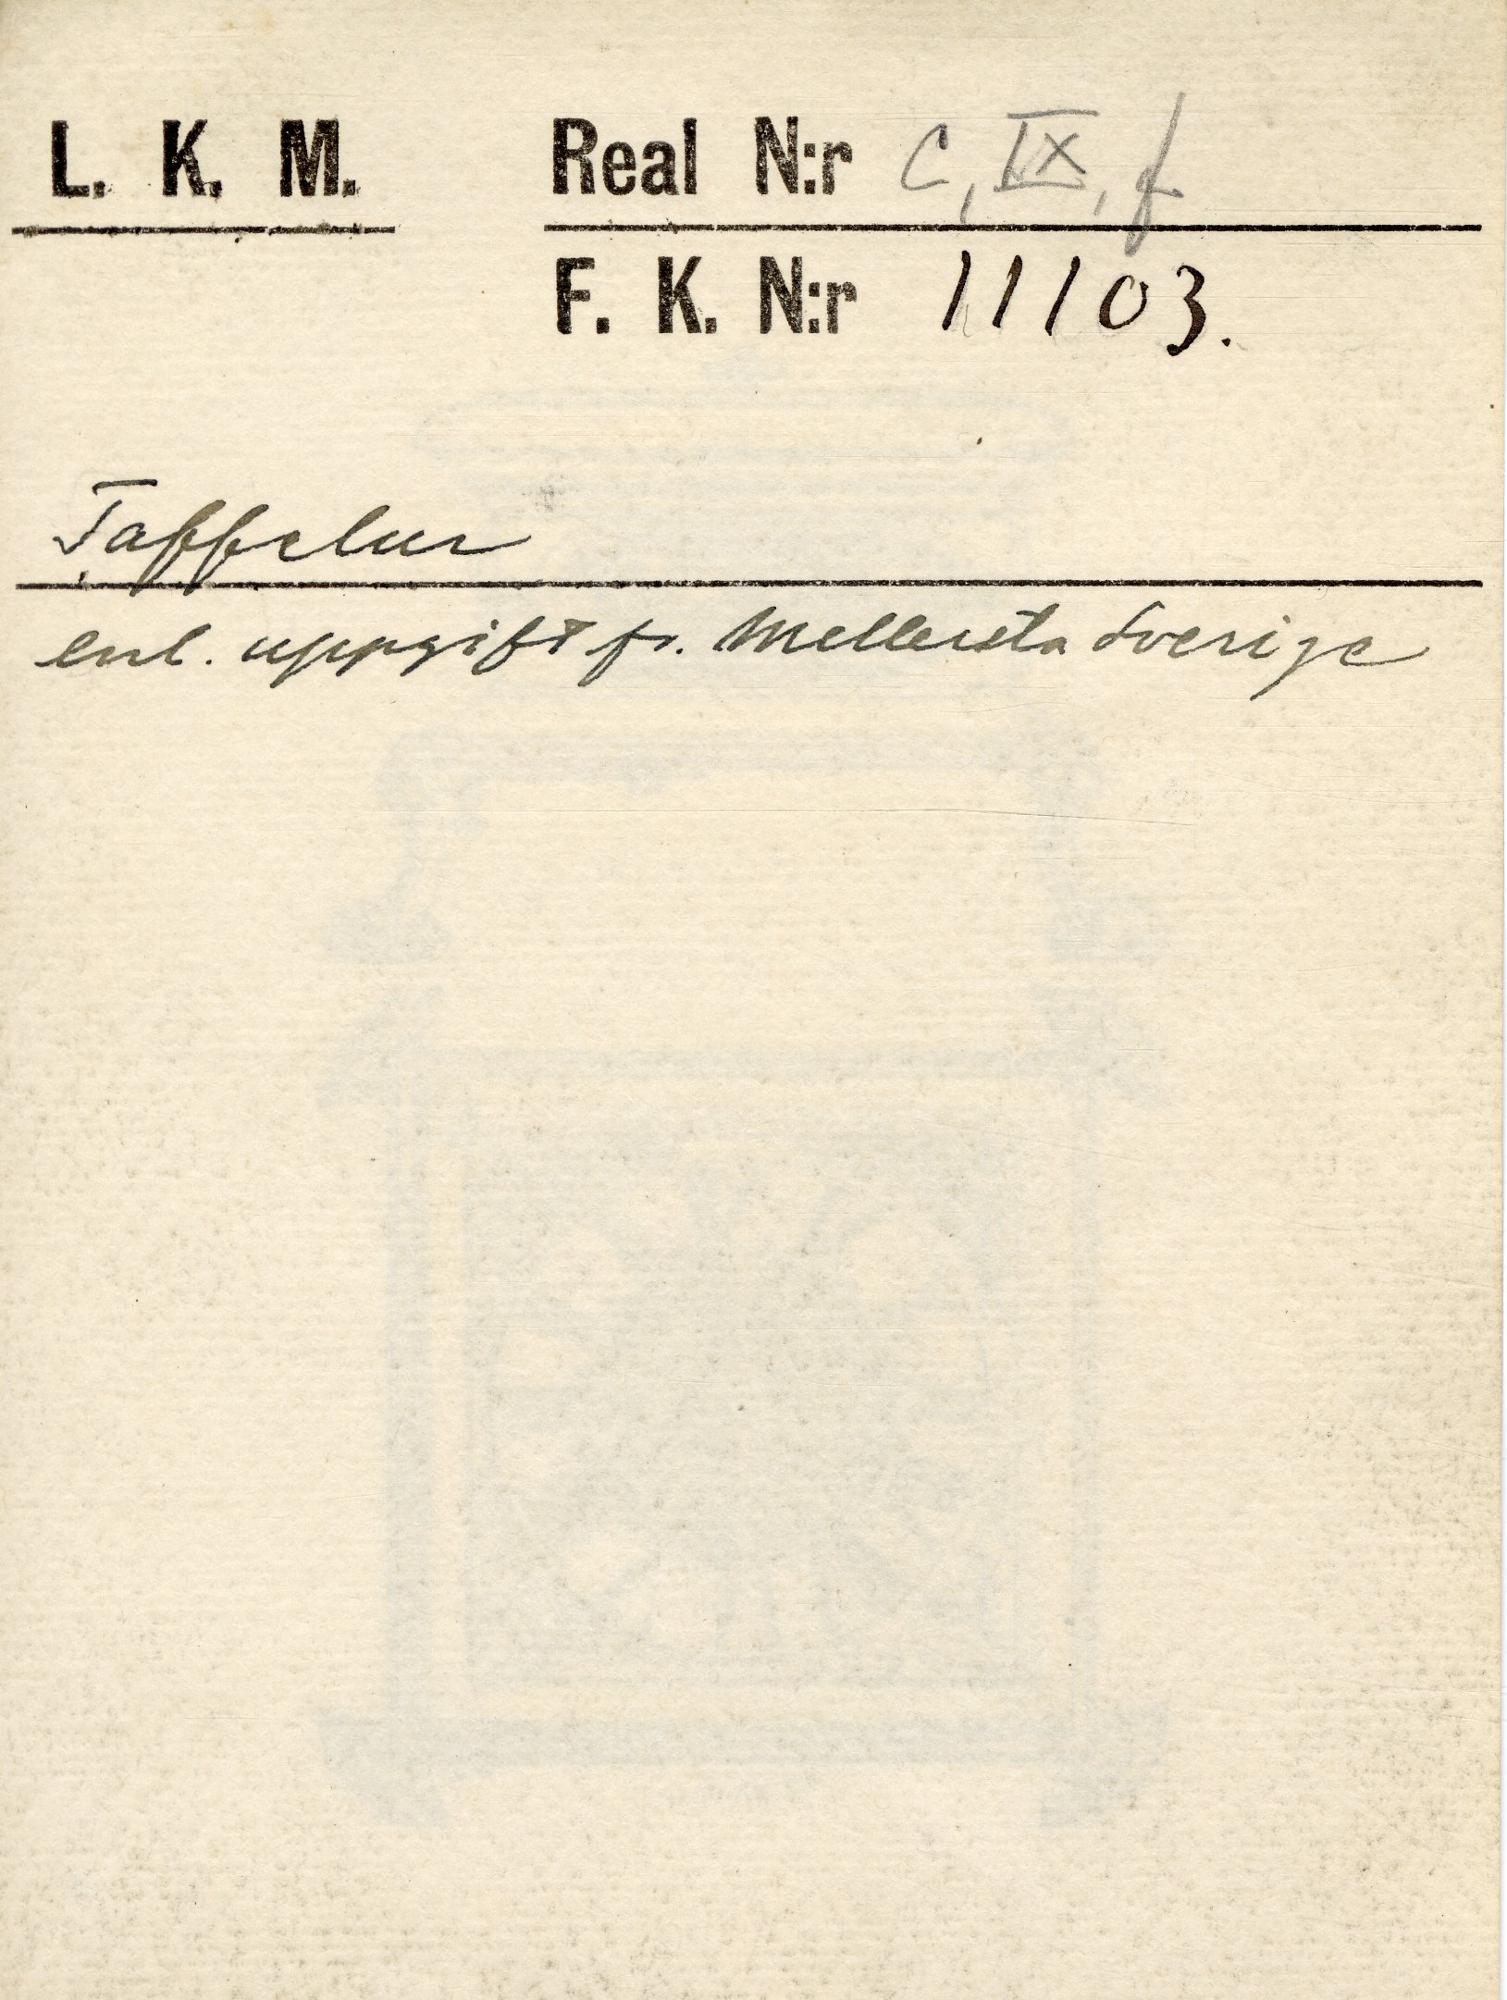 L. K. M. Real N:r C, IX, f
F. K. N:r 11103.
Taffelur
enl. uppgift fr. Mellersta Sverige